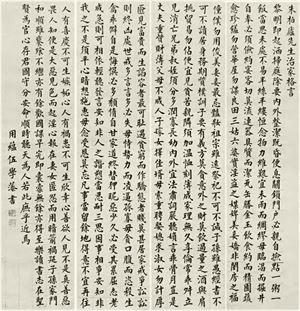 朱柏廬先生治家格言
黎明即起洒掃庭除要內外整潔既昏便息關鎖門戶必親自檢點一粥一
飯當思來處不易半絲半縷恆念物力維艱宜未雨而綢繆毋臨渴而掘井
自奉必須儉約宴客切勿流連器具質而潔瓦缶勝金玉飲食約而精園蔬
愈珍饈勿營華屋勿謀良田三姑六婆實淫盜之媒婢美妾嬌非閨房之福
僮僕勿用俊美妻妾最忌豔粧祖宗雖遠祭祀不可不誠子孫雖愚經書不
可不讀居身務期質樸訓子要有義方莫貪意外之財莫飲過量之酒與肩
挑貿易勿佔便宜見貧苦親鄰須加溫恤刻薄成家理無久享倫常乖舛立
見消亡兄弟叔姪須分多潤寡長幼內外宜法肅辭嚴聽婦言乖骨肉豈是
丈夫重資財薄父母不成人子嫁女擇佳婿毋索重聘娶媳求淑女勿計厚
匳見富貴而生諂容者最可恥遇貧窮而作驕態者賤莫甚居家戒爭訟訟
則終凶處世戒多言言多必失毋恃勢力而凌逼孤寡毋貪口腹而恣殺生
禽乖僻自是悔誤必多頹惰自甘家道難成狎昵惡少久必受其累屈志老
成急則可相依輕聽發言安知非人之譖愬當忍耐三思因事相爭安知非
我之不是須平心暗想施惠毋念受恩莫忘凡事當留餘地得意不宜再往
人有喜慶不可生妬忌心人有禍患不可生欣幸心善欲人見不是真善惡
畏人知便是大惡見色而起淫心報在妻女匿怨而用暗箭禍延子孫家門
和順雖饔飧不繼亦有餘歡國課早完即囊橐無餘自得至樂讀書志在聖
賢為官心存君國守分安命順時聽天為人若此庶乎近焉
用蘊伍學藻書